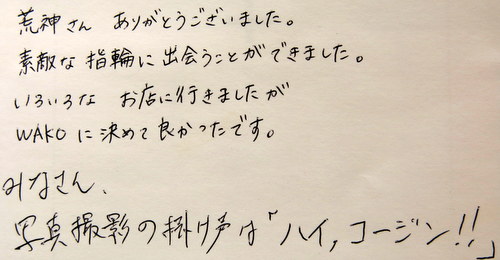 荒神さん ありがとうございました。
素敵な指輪に出会うことができました。
いろいろな お店に行きましたが
WAKOに決めて良かったです。
みなさん、
写真撮影の掛け声は「ハイ,コージン!!」